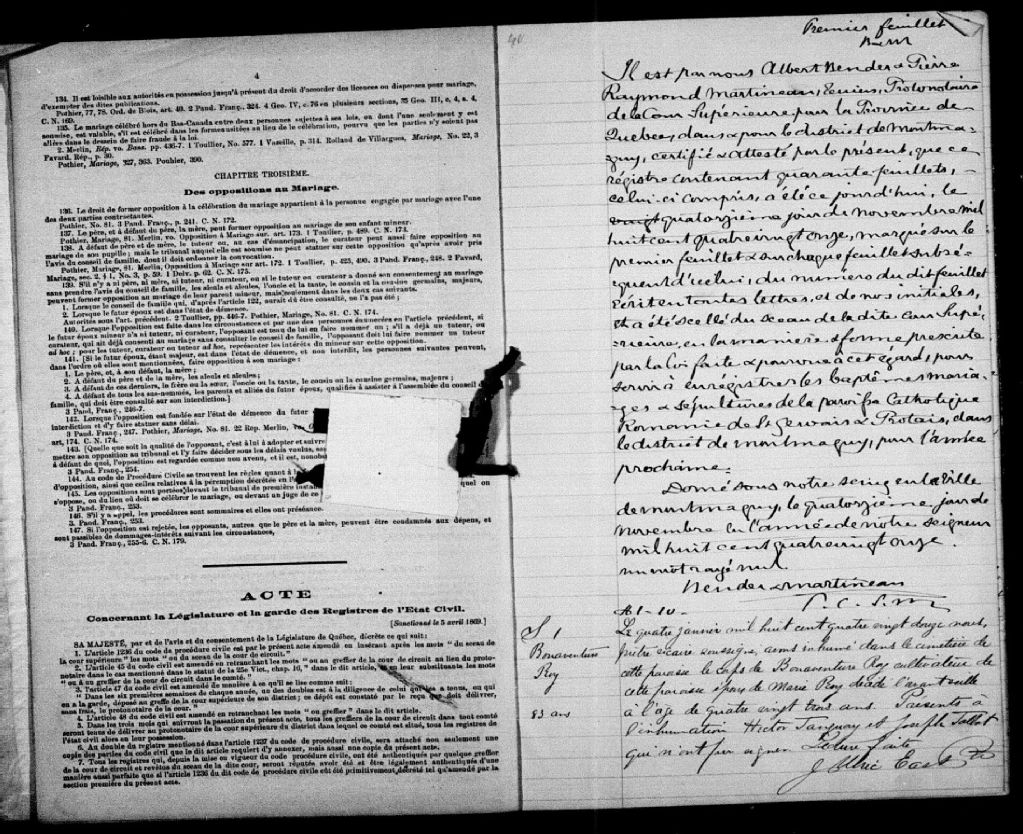 4
134. Il est loisible aux autorités en possession jusqu'à présent du droit d'accorder des licences ou dispenses pour mariage,
d'exempter des dites publications.
Pothier, 77, 78. Ord. de Blois, art. 40. 2 Pand. Franç., 324. 4 Geo. IV, c. 76 en plusieurs sections, 35 Geo. III, c. 4, s. 4,
C. N. 169.
135. Le mariage célébré hors du Bas-Canada entre deux personnes sujettes à ses lois, ou dont l'une seulement y est
soumise, est valable, s'il est célébré dans les formes usitées au lieu de la célébration, pourvu que les parties n'y soient pas
allées dans le dessein de faire fraude à la loi.
2. Merlin, Rép. vo. Bans. pp. 436-7. 1 Toullier, No. 577. 1 Vazeille, p. 314. Rolland de Villargues, Mariage, No. 22, 3
Favard, Rép., p. 30.
Pothier, Mariage, 327, 363. Pouhier, 390.
CHAPITRE TROISIÈME.
Des oppositions au Mariage.
136. Le droit de former opposition à la célébration du mariage appartient à la personne engagée par mariage avec l'une
des deux parties contractantes.
Pothier, No. 81. 3 Pand. Franç., p. 241. C. N. 172.
137. Le père, et à défaut du père, la mère, peut former opposition au mariage de son enfant mineur.
Pothier, Mariage, 81. Merlin, vo. Opposition à Mariage sur art. 173. 1 Toullier, p. 489. C. N. 173.
138. A défaut de père et de mère, le tuteur ou, au cas d'émancipation, le curateur peut aussi faire opposition au
mariage de son pupille; mais le tribunal auquel elle est soumise ne peut statuer sur cette opposition qu'après avoir pris
l'avis du conseil de famille, dont il doit ordonner la convocation.
Pothier, Mariage, 81. Merlin, Opposition à Mariage sur art. 172. 1 Toullier, p. 425, 490. 3 Pand. Franç., 248. 2 Favard,
Mariage, sec. 2, § 1, No. 3, p. 59. 1 Delv. p. 62. C. N. 175.
139. S'il n'y a ni père, ni mère, ni tuteur, ni curateur, ou si le tuteur ou curateur a donné son consentement au mariage
sans prendre l'avis du conseil de famille, les aïeuls et aïeules, l'oncle et la tante, le cousin et la cousine germains, majeurs,
peuvent former opposition au mariage de leur parent mineur, mais seulement dans les deux cas suivants.
1. Lorsque le conseil de famille qui, d'après l'article 122, aurait dû être consulté, ne l'a pas été;
2. Lorsque le futur époux est dans l'état de démence.
Autorités sous l'art. précédent. 2 Toullier, pp. 446-7. Pothier, Mariage, No. 81. C. N. 174.
140. Lorsque l'opposition est faite dans les circonstances et par une des personnes énumérées en l'article précédent, si
le futur époux mineur n'a ni tuteur, ni curateur, l'opposant est tenu de lui en faire nommer un; s'il a déjà un tuteur, ou
curateur, qui ait déjà consenti au mariage sans consulter le conseil de famille, l'opposant doit lui faire nommer un tuteur
ad hoc; pour les tuteur, curateur ou tuteur ad hoc, représenter les intérêts du mineur sur cette opposition.
141. [Si le futur époux, étant majeur, est dans l'état de démence, et non interdit, les personnes suivantes peuvent,
dans l'ordre où elles sont mentionnées, faire opposition à son mariage:
1. Le père, et, à son défaut, la mère;
2. A défaut du père et de la mère, les aïeuls et aïeules;
3. A défaut de ces derniers, le frère ou la sœur, l'oncle ou la tante, le cousin ou la cousine germains, majeurs;
4. A défaut de tous les sus-nommés, les parents et alliés du futur époux, qualifiés à assister à l'assemblée du conseil d
famille, qui doit être consulté sur son interdiction.]
3 Pand. Franç., 246-7.
142. Lorsque l'opposition est fondée sur l'état de démence du futur
interdiction et d'y faire statuer sans délai.
3 Pand. Franç., 247. Pothier, Mariage, No. 81. 22 Rep. Merlin, vo.
art. 174. C. N. 174.
143. [Quelle que soit la qualité de l'opposant, c'est à lui à adopter et suivre
mettre son opposition au tribunal et l'y faire décider sous les délais voulus, ses
à défaut de quoi, l'opposition est regardée comme non avenu, et il est, nonobs
3 Pand. Franç., 254.
144. Au code de Procédure Civile se trouvent les règles quant à la
d'opposition, ainsi que celles relatives à la péremption décrétée en l'
145. Les oppositions sont portées devant le tribunal de première instance
s'oppose, ou du lieu où doit se célébrer le mariage, ou devant un juge de ce
3 Pand. Franç., 253.
146. S'il y a appel, les procédures sont sommaires et elles ont préséance.
3. Pand. Franç., 253.
147. Si l'opposition est rejetée, les opposants, autres que le père et la mère, peuvent être condamnés aux dépens, et
sont passibles de dommages-intérêts suivant les circonstances,
3 Pand. Franç., 255-6. C. N. 179.
ACTE
Concernant la Législature et la garde des Registres de l'Etat Civil.
[Sanctionné le 5 avril 1869.]
SA MAJESTÉ, par et de l'avis et du consentement de la Législature de Québec, décrète ce qui suit:
1. L'article 1236 du code de procédure civile est par le présent acte amendé en insérant après les mots " du sceau de
la cour supérieure " les mots " ou du sceau de la cour de circuit."
2. L'article 45 du code civil est amendé en retranchant les mots " ou au greffier de la cour de circuit au lieu du proto-
notaire dans le cas mentionné dans le statut de la 25e Vict., chap. 16, " dans le dit article, et en leur substituant les mots
" ou à un greffier de la cour de circuit dans le comté "
3. L'article 47 du code civil est amendé de manière à ce qu'il se lise comme suit:
" Dans les six premières semaines de chaque année, un des doubles est à la diligence de celui qui les a tenus, ou qui
en a la garde, déposé au greffe de la cour supérieure de son district; ce dépôt est constaté par le reçu que doit délivrer,
sans frais, le protonotaire de la cour."
4. L'article 48 du code civil est amendé en retranchant les mots " ou greffier " dans le dit article.
5. Dans les trois mois qui suivront la passation du présent acte, tous les greffiers de la cour de circuit dans tout comté
seront tenus de délivrer au protonotaire de la cour supérieure du district dans lequel ce comté est situé, tous les registres de
l'état civil alors en leur possession.
6. Au double du registre mentionné dans l'article 1237 du code de procédure civile, sera attaché non seulement une
copie des parties du code civil que le dit article requiert d'y annexer, mais aussi une copie du présent acte.
7. Tous les registres qui, depuis la mise en vigueur du code de procédure civile, ont été authentiqués par quelque greffier
de la cour de circuit et revêtus du sceau de la dite cour, seront réputés avoir été et être légalement authentiqués d'une
manière aussi parfaite que si l'article 1236 du dit code de procédure civile eût été primitivement décrété tel qu'amendé par la
section première du présent acte.
Premier feuillet
B & M
Il est par nous Albert Bender & Pierre
Raymond Martineau, Ecuiers, Protonotaire
de la Cour Supérieure pour la Province de
Québec, dans & pour le district de Montma-
gny, certifié & attesté par le présent, que ce
régistre contenant quarante feuillets, -
celui-ci compris, a été ce jourd'hui, le
quatorzième jour de Novembre mil
huit cent quatre vingt onze, marqué sur le
premier feuillet & sur chaque feuillet subsé-
quent d'icelui, du numéro du dit feuillet
écrit en toutes lettres, et de nos initiales,
et a été scellé du sceau de la dite Cour Supé-
rieure, en la manière & forme prescrite
par la loi faite & pourvue à cet égard, pour
servir à enregistrer les baptêmes maria-
ges & sépultures de la paroisse Catholique
Romaine de St Gervais & Protais, dans
le district de Montmagny, pour l'année
prochaine.
Donné sous notre seing en la Ville
de Montmagny, le quatorzième jour de
Novembre en l'année de notre Seigneur
mil huit cent quatre vingt onze.
un mot rayé nul.
Bender & Martineau
P. C. S. M
S 1
Bonaventure
Roy
83 ans
Le quatre janvier mil huit cent quatre vingt douze nous,
prêtre vicaire soussigné, avons inhumé dans le cimetière de
cette paroisse le corps de Bonaventure Roy cultivateur de
cette paroisse époux de Marie Roy décédé l'avant veille
à l'âge de quatre vingt trois ans. Présents à
l'inhumation Hector Tanguay et Joseph Talbot
qui n'ont pu signer. Lecture faite